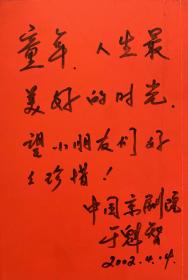 童年，人生最
美好的时光.
望小朋友们好
好珍惜！
中国京剧院
于魁智
2002.4.14